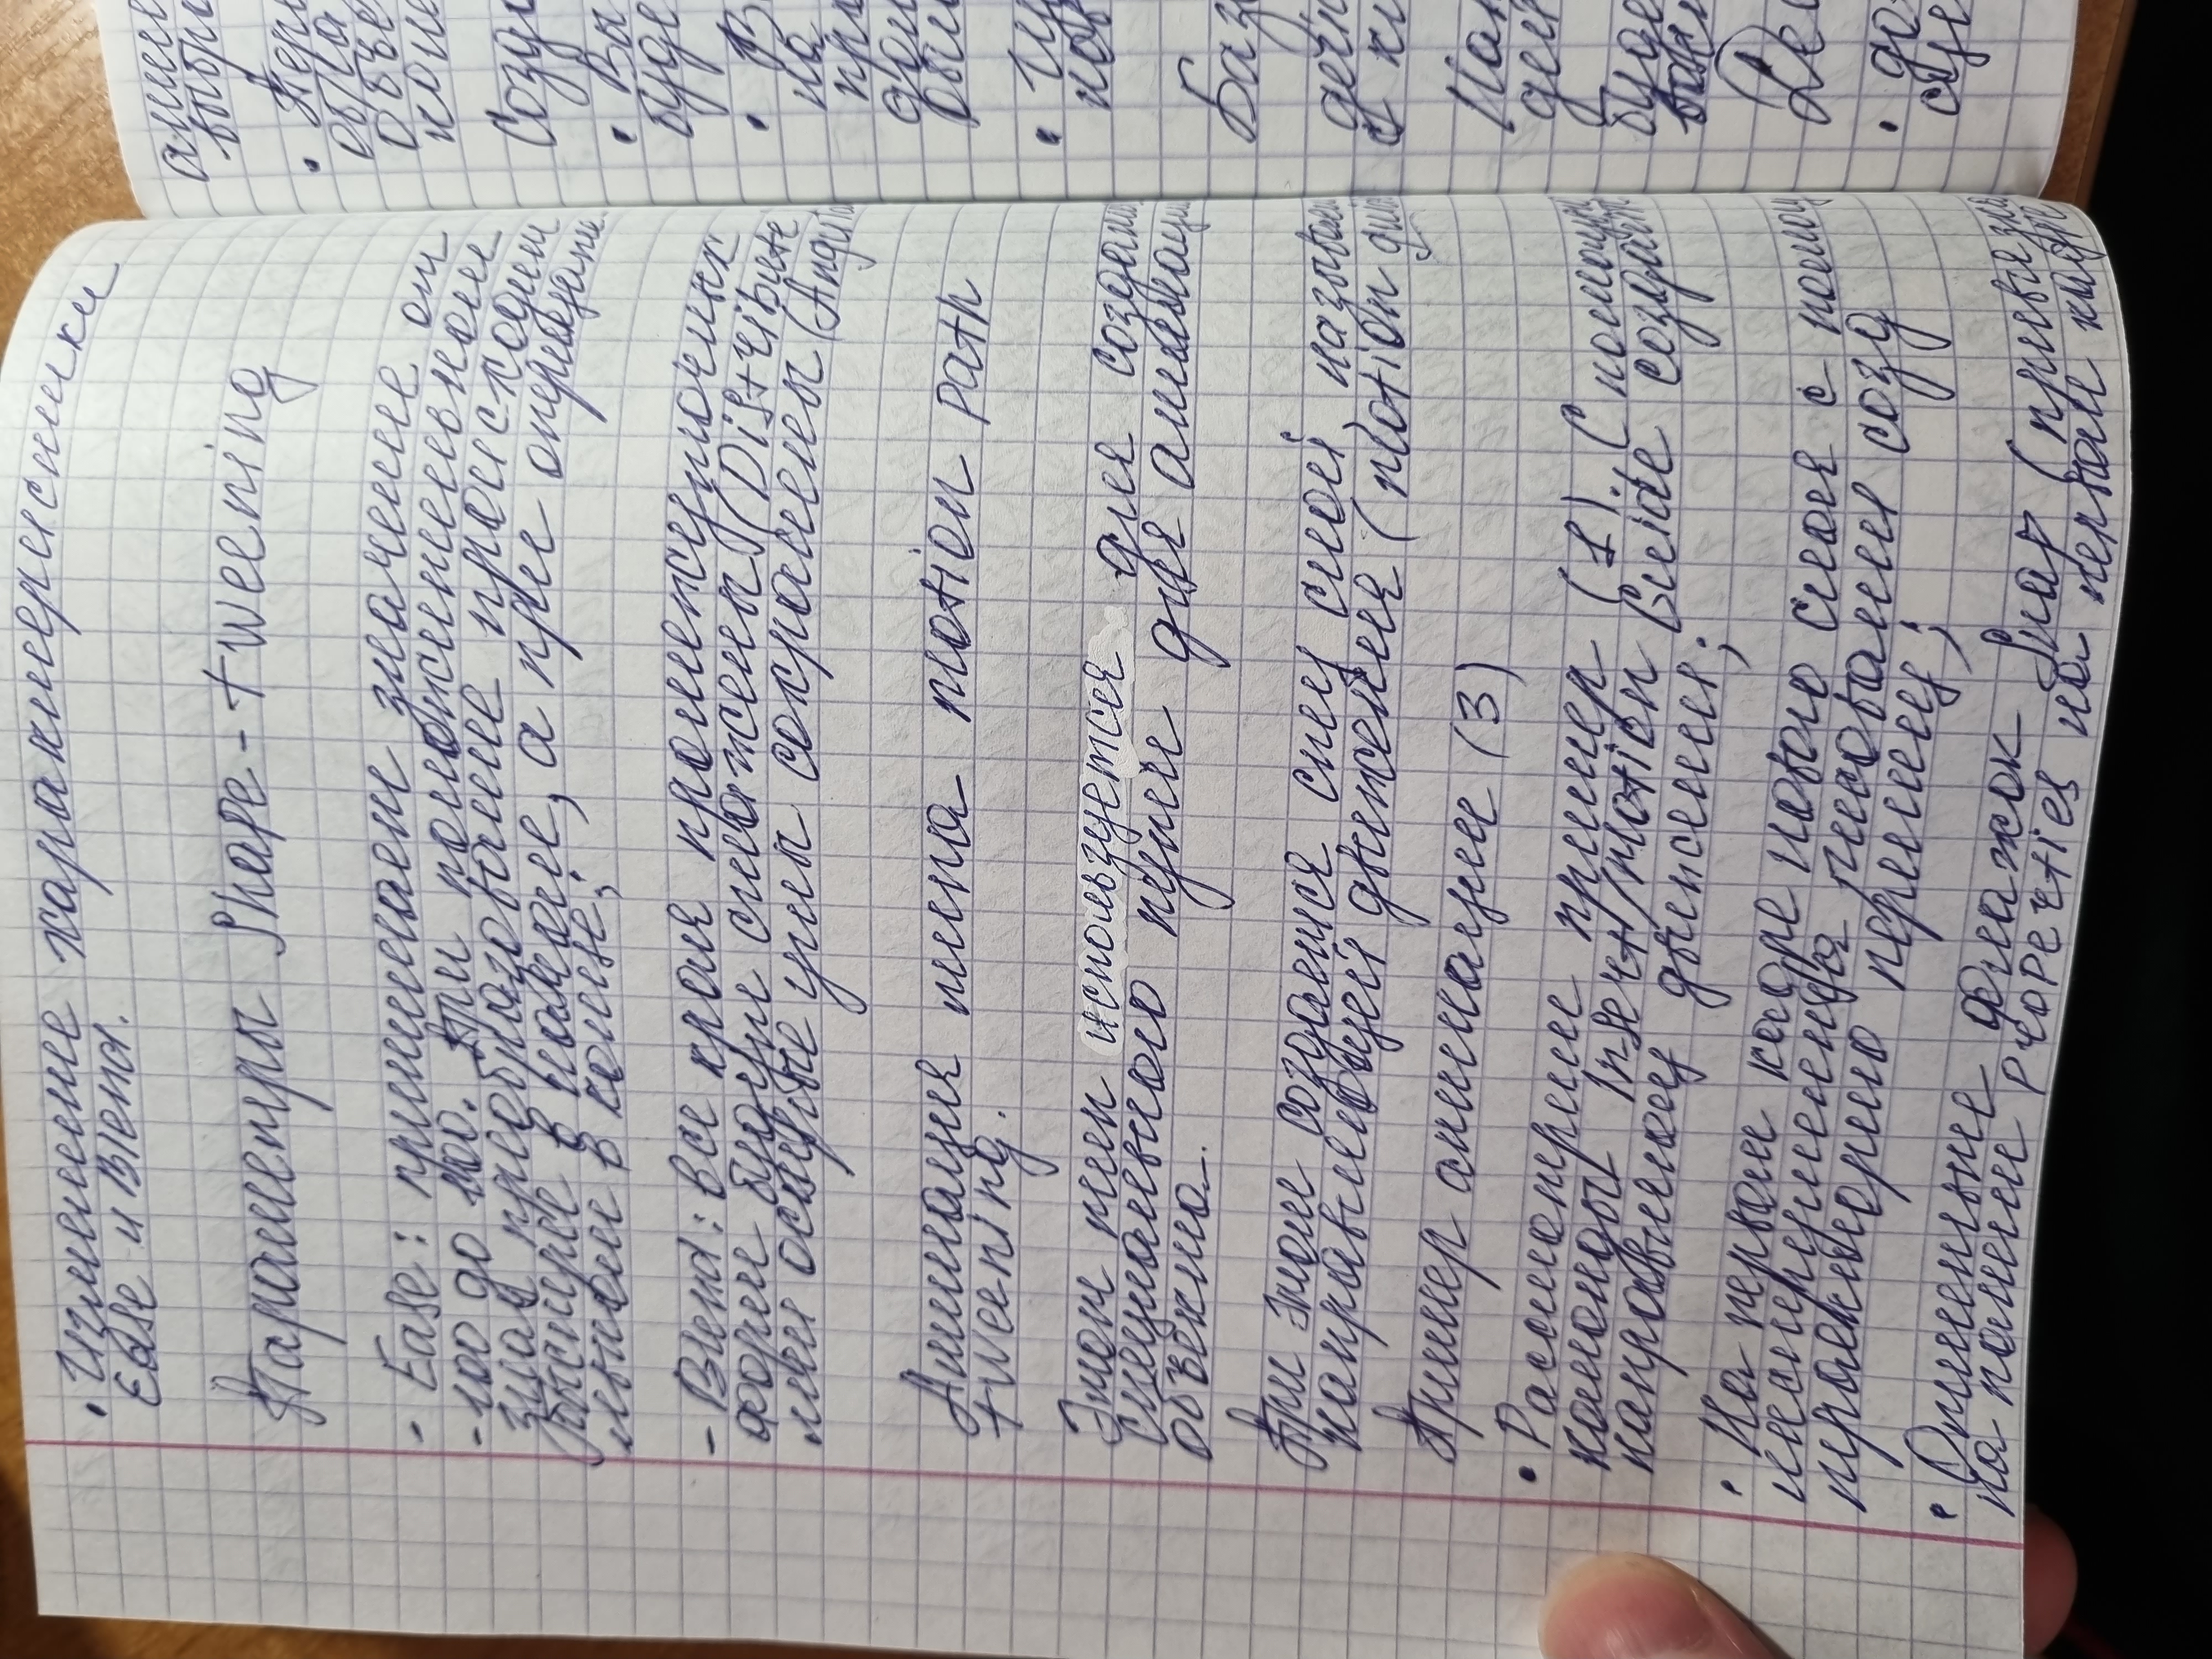 • Изменение характеристики
Ease и Blend.
Параметры Shape-tweening
- Ease: принимает значение от
-100 до 100. При положительном
знак преобразование происходит
быстрее в начале, а при отрицате
льном в конце;
- Blend: все края промежуточных
форм будут сглажены (Distribute
или острые углы сохранены (Angula
Анимация типа motion path
tweening.
Этот тип используется для создани
специального пути для анимаци
объекта.
При этом создается спец слой, называем
направляющей движения (motion guid
Пример анимации (3)
• Рассмотрим пример (1). С помощь
команды Insert/motion Guide создайт
направляющ движения;
• На первом кадре нового слоя с помощ
инструмента рисования созд
траекторию перемещ;
• Отметьте флажок Snap (привязка
на панели Properties на первом кадре
аним
выбра
• Пере
обра
объе
коне
Созда
• Вы
буде
• В
на
пра
дол
был
нов
База
дейс
с кл
Нап
дей
буде
• до
сце